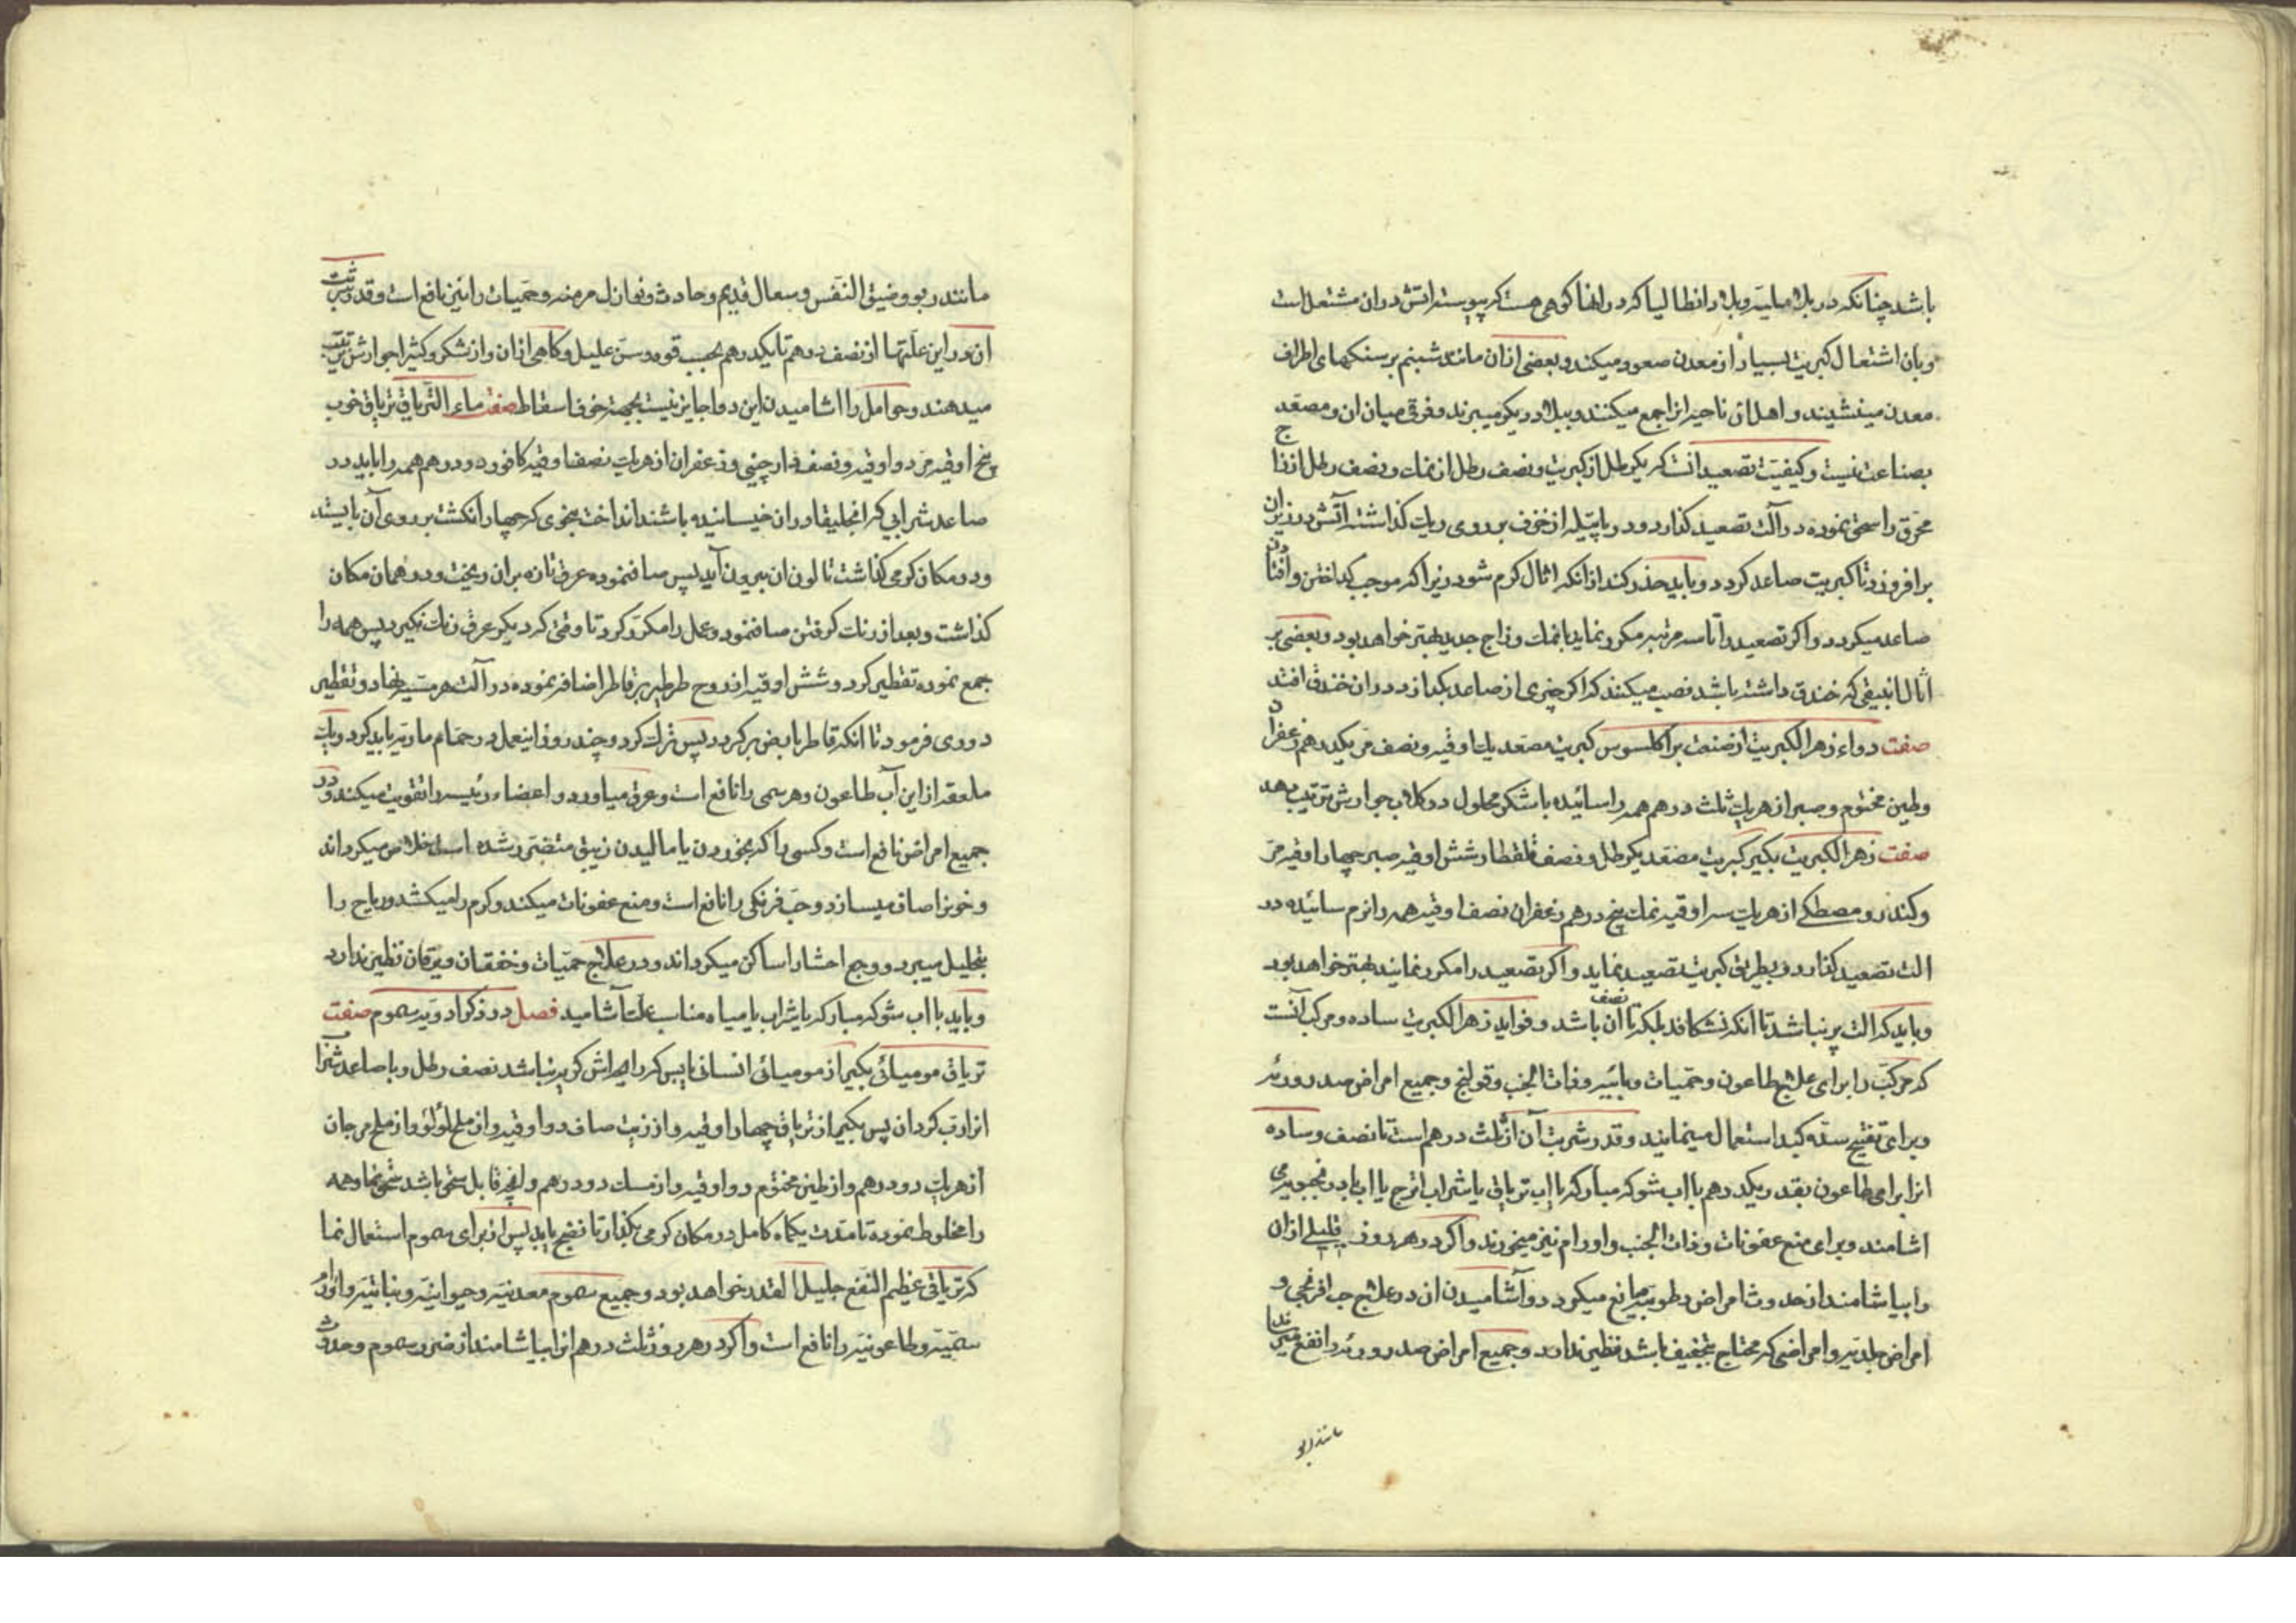 باشد چنانکه در بلاد صلیه و بلاد انطالیا که در انجا کوهی هست که پیوسته اتش دران مشتعل است
وبان اشتعال کبریت بسیار از معدن صعود میکند و بعضی ازان مانند شبنم بر سنکهای اطراف
معدن مینشیند و اهل ان ناحیه انرا جمع میکنند و ببلاد دیکر میبرند و فرقی میان ان و مصعد
بصناعت نیست و کیفیت تصعید انست که یکرطل از کبریت و نصف رطل از نمک و نصف رطل از زاج
محرق را سحق نموده در آلت تصعید کذارد و در پاتیله از خزف بر روی ریک کذاشته آتش در زیر ان
برافروزد تا کبریت صاعد کردد و باید حذر کند از انکه اثال کرم شود زیرا که موجب کداختن و افتادن
صاعد میکردد و اکر تصعید را تا سه مرتبه مکرر نماید با نمک و زاج جدید بهتر خواهد بود و بعضی بر
اثال انبیقی که خندق داشته باشد نصب میکنند که اکر چیزی از صاعد بکدازد در ان خندق افتد
صفت دواء زهر الکبریت از صنعت براکلسوس کبریت مصعد یک اوقیه و نصف مر یکدرهم زعفران
وطین مختوم و صبر از هریک ثلث درهم همه را سائیده با شکر محلول در کلاب جوارش ترتیب دهد
صفت زهر الکبریت بکیر کبریت مصعد یکرطل و نصف قلقطار شش اوقیه صبر چهار اوقیه مر
وکندر و مصطکی از هریک سه اوقیه نمک پنج درهم زعفران نصف اوقیه همه را نرم سائیده در
الت تصعید کذارد و بطریق کبریت تصعید نماید و اکر تصعید را مکرر نمایند بهتر خواهد بود
وباید که الت پر نباشد تا انکه نشکافد بلکه تا نصف ان باشد و فواید زهر الکبریت ساده و مرکب انست
که مرکب را برای علاج طاعون و حمیات وبائیه و ذات الجنب و قولنج و جمیع امراض صدر و ریه
وبرای تفتیح سده کبد استعمال مینمایند و قدر شربت آن از ثلث درهم است تا نصف و ساده
انرا برای طاعون بقدر یکدرهم با اب شوکه مبارکه یا اب تریاق یا شراب اترج یا اب بادرنجبویه می
اشامند و برای منع عفونات و ذات الجنب و اورام نیز میخورند و اکر در هر روز قلیلی ازان
را بیاشامند از حدوث امراض رطوبیه مانع میکردد و آشامیدن ان در علاج حب افرنجی و
امراض جلدیه و امراضی که محتاج بتجفیف باشد نظیر ندارد و جمیع امراض صدر و ریه را نفع میرساند
مانند ربو
مانند ربو و ضیق النفس و سعال قدیم و حادث و نوازل مزمنه و حمیات را نیز نافع است و قدر شربت
ان در این علتها از نصف درهم تا یکدرهم بحسب قوه و سن علیل و کاهی ازان و از شکر و کثیرا جوارش ترتیب
میدهند و حوامل را اشامیدن این دوا جایز نیست بجهة خوف اسقاط صفت ماء التریاق تریاق خوب
پنج اوقیه مر دو اوقیه و نصف دارچینی و زعفران از هریک نصف اوقیه کافور دو درهم همه را باید در
صاعد شرابی که انجلیقا دران خیسانیده باشند انداخت بنحوی که چهار انکشت بر روی آن بایستد
ودر مکان کرمی کذاشت تا لون ان بیرون آید پس صاف نموده عرق تازه بران ریخت و در همان مکان
کذاشت و بعد از رنک کرفتن صاف نمود و عمل را مکرر کرد تا وقتی که دیکر عرق رنک نکیرد پس همه را
جمع نموده تقطیر کرد و شش اوقیه از روح طرطیر بر قاطر اضافه نموده در آلت هرمسیه نهاد و تقطیر
دوری فرمود تا انکه قاطر بابض برکردد پس ترک کرد و چند روز اینعمل در حمام ماریه باید کرد و یک
ملعقه از این آب طاعون و هر سمی را نافع است و عرق میاورد و اعضاء رئیسه را تقویت میکند و در
جمیع امراض نافع است و کسی را که بخوردن یا مالیدن زیبق متضرر شده است خلاص میکرداند
وخونرا صاف میسازد و حب فرنکی را نافع است و منع عفونات میکند و کرم را میکشد و ریاح را
بتحلیل میبرد و وجع احشا را ساکن میکرداند و در علاج حمیات و خفقان و یرقان نظیر ندارد
وباید با اب شوکه مبارکه یا شراب یا میاه مناسب علت آشامید فصل در ذکر ادویه سموم صفت
تریاق مومیائی بکیر از مومیائی انسانی یابس که رایحه اش کریه نباشد نصف رطل و با صاعد شراب
انرا رب کردان پس بکیر از تریاق چهار اوقیه و از زیت صاف دو اوقیه و از ملح لؤلؤ و از ملح مرجان
از هریک دو درهم و از طین مختوم دو اوقیه و از مسک دو درهم و انچه قابل سحق باشد سحق نما و همه
را مخلوط نموده تا مدت یکماه کامل در مکان کرمی بکذار تا نضج یابد پس انرا برای سموم استعمال نما
که تریاقی عظیم النفع جلیل القدر خواهد بود و جمیع سموم معدنیه و حیوانیه و نباتیه و اورام
سمیه و طاعونیه را نافع است و اکر در هر روز ثلث درهم انرا بیاشامند از ضرر سموم و حدوث